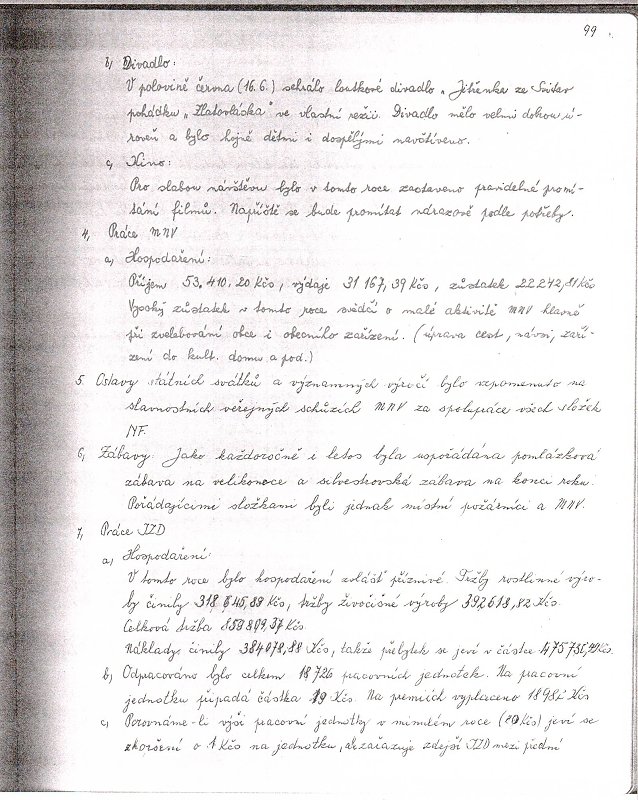 99
b, Divadlo:
V polovině června (16.6.) sehrálo loutkové divadlo „Jitřenka ze Svitav
pohádku „Zlatovláska" ve vlastní režii. Divadlo mělo velmi dobrou ú-
roveň a bylo hojně dětmi i dospělými navštíveno.
c, Kino:
Pro slabou návštěvu bylo v tomto roce zastaveno pravidelné promí-
tání filmů. Napříště se bude promítat nárazově podle potřeby.
4, Práce MNV
a, Hospodaření:
Příjem 53.410.20 Kčs, výdaje 31 167,39 Kčs, zůstatek 22 242,81 Kčs
Vysoký zůstatek v tomto roce svědčí o malé aktivitě MNV hlavně
při zvelebování obce i obecního zařízení. (úprava cest, návsi, zaří-
zení do kult. domu a pod.)
5. Oslavy státních svátků a významných výročí bylo vzpomenuto na
slavnostních veřejných schůzích MNV za spolupráce všech složek
NF.
6, Zábavy: Jako každoročně i letos byla uspořádána pomlázková
zábava na velikonoce a silvestrovská zábava na konci roku.
Pořádajícími složkami byli jednak místní požárníci a MNV.
7, Práce JZD
a, Hospodaření:
V tomto roce bylo hospodaření zvlášť příznivé. Tržby rostlinné výro-
by činily Kčs, tržby živočišné výroby 392618,82 Kčs.
Celková tržba Kčs
Náklady činily 384078,88 Kčs, takže přebytek se jeví v částce Kčs.
b) Odpracováno bylo celkem 18 726 pracovních jednotek. Na pracovní
jednotku připadá částka 19 Kčs. Na premiích vyplaceno Kčs
c, Porovnáme-li výši pracovní jednotky v minulém roce (20 Kčs) jeví se
zhoršení o 1 Kčs na jednotku, ale zařazuje zdejší JZD mezi přední